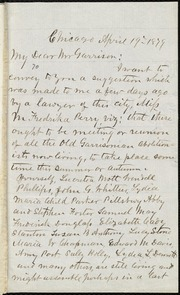 Chicago April 19th 1879
My Dear Mr Garrison:
I want to
convey to you a suggestion which
was made to me a few days ago
by a lawyer of this city, Miss
M. Fredrika Perry viz; that there
ought to be meeting or reunion
of all the old Garrisonian abolition-
ists now living, to take place some
time this summer or autumn.
Pownsley Lucretia Mott Wendell
Phillips, John G. Whittier, Lydia
Maria Child Parker Pillsbury Abby
and Stephen Foster Samuel May
Frederick Douglass Elizabeth Cady
Stanton Susan B Anthony Lucy Stone
Maria W Chapman, Edward M. Davis
Amy Post Sally Holly, Lydia L. Dennett
and many others are still living and
might assemble perhaps in a last